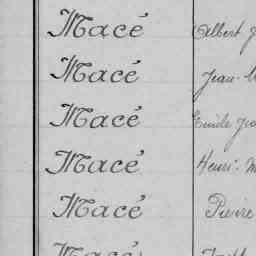 Macé Albert
Macé Jean-
Macé Emile
Macé Henri-
Macé Pierre
Macé